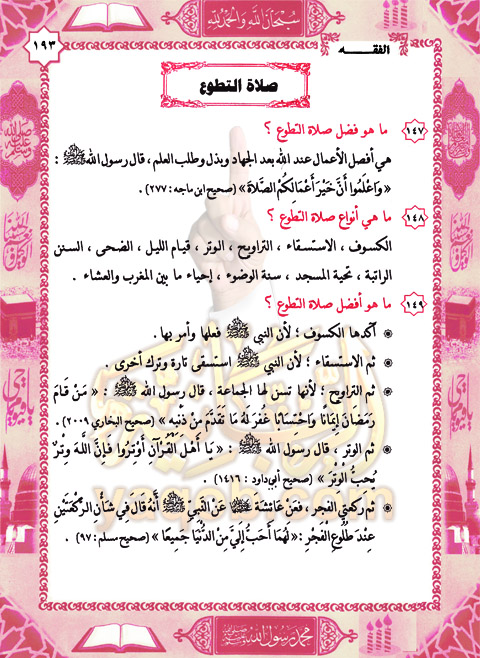 سُبْحَانَ اللهِ وَالْحَمْدُ لِلَّهِ
١٩٣
الفقــه
صلاة التطوع
١٤٧ ما هو فضل صلاة التطوع ؟
هي أفضل الأعمال عند الله بعد الجهاد وبذل وطلب العلم ، قال رسول الله ﷺ :
« وَاعْلَمُوا أَنَّ خَيْرَ أَعْمَالِكُمُ الصَّلاَةَ » (صحيح ابن ماجه : ٢٧٧) .
١٤٨ ما هي أنواع صلاة التطوع ؟
الكسوف ، الاستسقاء ، التراويح ، الوتر ، قيام الليل ، الضحى ، السنن
الراتبة ، تحية المسجد ، سنة الوضوء ، إحياء ما بين المغرب والعشاء .
١٤٩ ما هو أفضل صلاة التطوع ؟
آكدها الكسوف ؛ لأن النبي ﷺ فعلها وأمر بها .
ثم الاستسقاء ؛ لأن النبي ﷺ استسقى تارة وترك أخرى .
ثم التراويح ؛ لأنها تسن لها الجماعة ، قال رسول الله ﷺ : « مَنْ قَامَ
رَمَضَانَ إِيمَانًا وَاحْتِسَابًا غُفِرَ لَهُ مَا تَقَدَّمَ مِنْ ذَنْبِهِ » (صحيح البخاري ٢٠٠٩) .
ثم الوتر ، قال رسول الله ﷺ : « يَا أَهْلَ الْقُرْآنِ أَوْتِرُوا فَإِنَّ اللهَ وِتْرٌ
يُحِبُّ الْوِتْرَ » (صحيح أبي داود : ١٤١٦) .
ثم ركعتي الفجر ؛ فَعَنْ عَائِشَةَ عَنِ النَّبِيِّ ﷺ أَنَّهُ قَالَ فِي شَأْنِ الرَّكْعَتَيْنِ
عِنْدَ طُلُوعِ الْفَجْرِ : « لَهُمَا أَحَبُّ إِلَيَّ مِنَ الدُّنْيَا جَمِيعًا » (صحيح مسلم : ٩٧) .
محمد رسول الله ﷺ